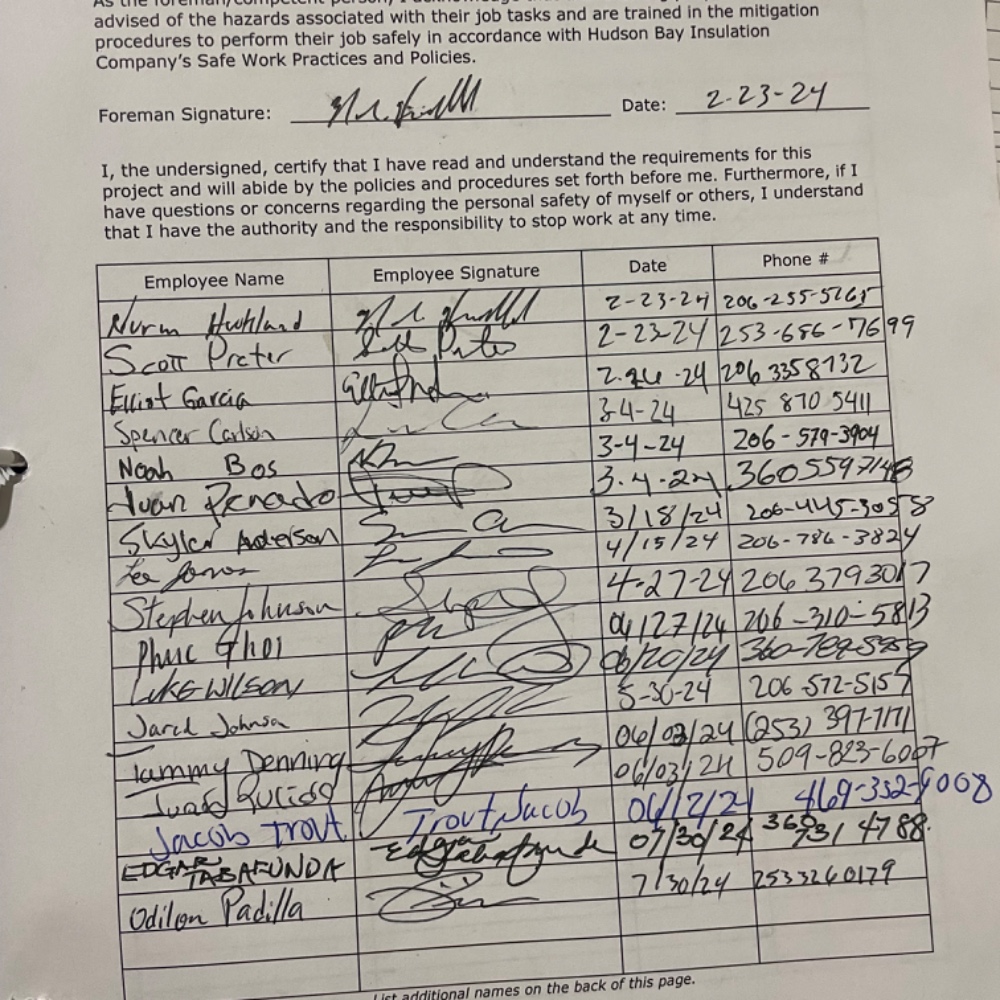 advised of the hazards associated with their job tasks and are trained in the mitigation
procedures to perform their job safely in accordance with Hudson Bay Insulation
Company's Safe Work Practices and Policies.
Foreman Signature: Date: 2-23-24
I, the undersigned, certify that I have read and understand the requirements for this
project and will abide by the policies and procedures set forth before me. Furthermore, if I
have questions or concerns regarding the personal safety of myself or others, I understand
that I have the authority and the responsibility to stop work at any time.
Employee Name Employee Signature Date Phone #
Norm 2-23-24 206-255-5265
Scott Preter 2-23-24 253-686-7699
Elliot Garcia 2.26-24 206 3358132
Spencer Carlson 3-4-24 425 870 5411
Noah Bos 3-4-24 206-579-3904
Juan 3.4.24 3605597148
Skyler Anderson 3/18/24 206-445-3058
Lee Jones 4/15/24 206-786-3824
Stephen Johnson 4-27-24 206 3793017
Phuc Ghoi 04/27/24 206-310-5813
LUKE WILSON
Jared Johnson 5-30-24 206-572-5157
Tammy Denning 06/03/24 (253) 397-7171
06/03/24 509-823-6007
Jacob Trout Trout, Jacob 06/12/24 469-332-9008
EDGAR TABAFUNDA 07/30/24 360 731 4788
Odilon Padilla 7/30/24 2533260179
List additional names on the back of this page.